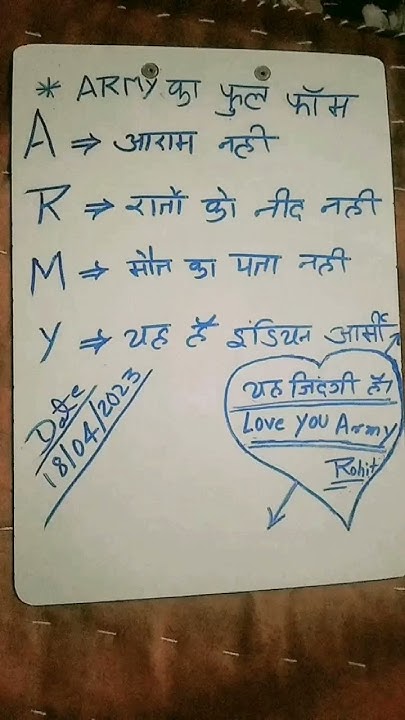 * ARMY का फुल फॉम
A ⇒ आराम नही
R ⇒ रातों को नीद नही
M ⇒ मौत का पता नही
Y ⇒ यह हैं इंडियन आर्मी
Date
18/04/2023
यह जिंदगी हैं।
Love You Army
Rohit